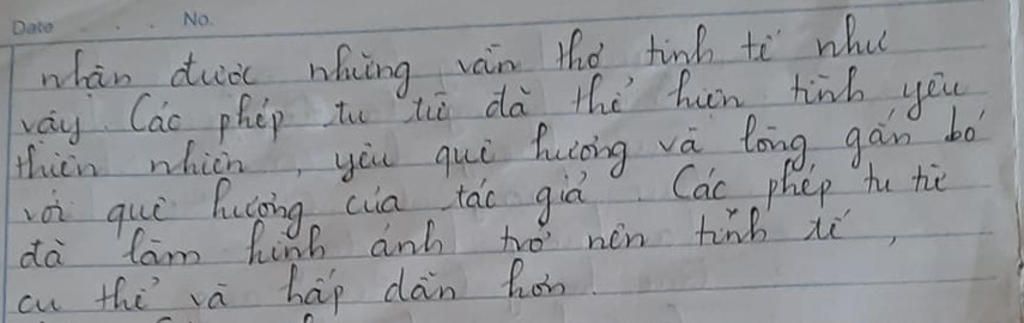 Date . . . No.
nhận được những vần thơ tinh tế như
vậy. Các phép tu từ đã thể hiện tình yêu
thiên nhiên, yêu quê hương và lòng gắn bó
với quê hương của tác giả. Các phép tu từ
đã làm hình ảnh trở nên tinh tế,
cụ thể và hấp dẫn hơn.